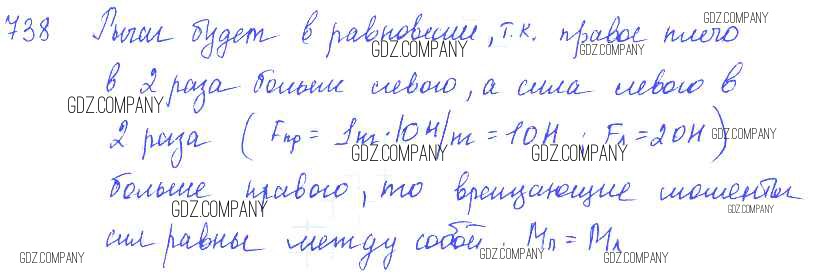 738 Рычаг будет в равновесии, т.к. правое плечо
в 2 раза больше левого, а сила левого в
2 раза (Fпр = 1кг·10Н/кг = 10Н; Fл = 20Н)
больше правого, то вращающие моменты
сил равны между собой. Mп = Mл
GDZ.COMPANY
GDZ.COMPANY
GDZ.COMPANY
GDZ.COMPANY
GDZ.COMPANY
GDZ.COMPANY
GDZ.COMPANY
GDZ.COMPANY
GDZ.COMPANY
GDZ.COMPANY
GDZ.COMPANY
GDZ.COMPANY